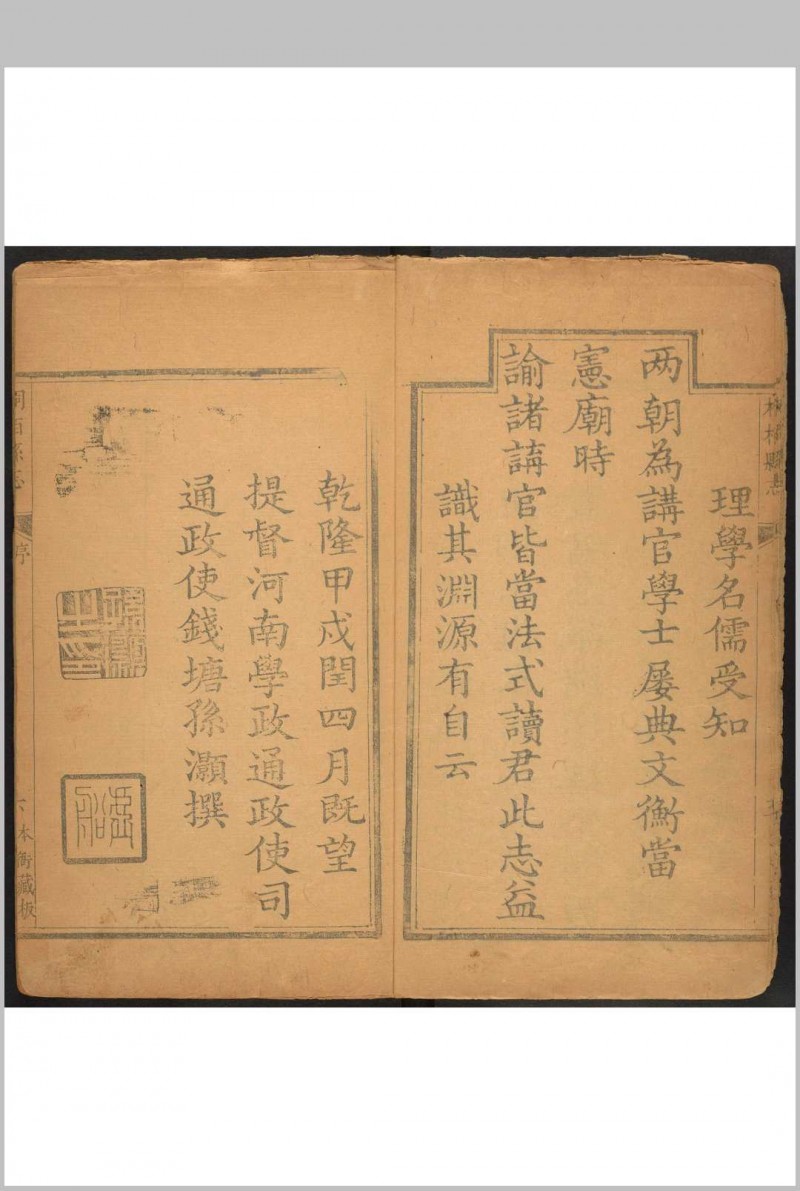 桐柏縣志
理學名儒受知
两朝為講官學士屡典文衡當
憲廟時
諭諸講官皆當法式讀君此志益
識其淵源有自云
乾隆甲戌閏四月既望
提督河南學政通政使司
通政使錢塘孫灝撰
孫灝之印
桐柏縣志
序
六
本衙藏板